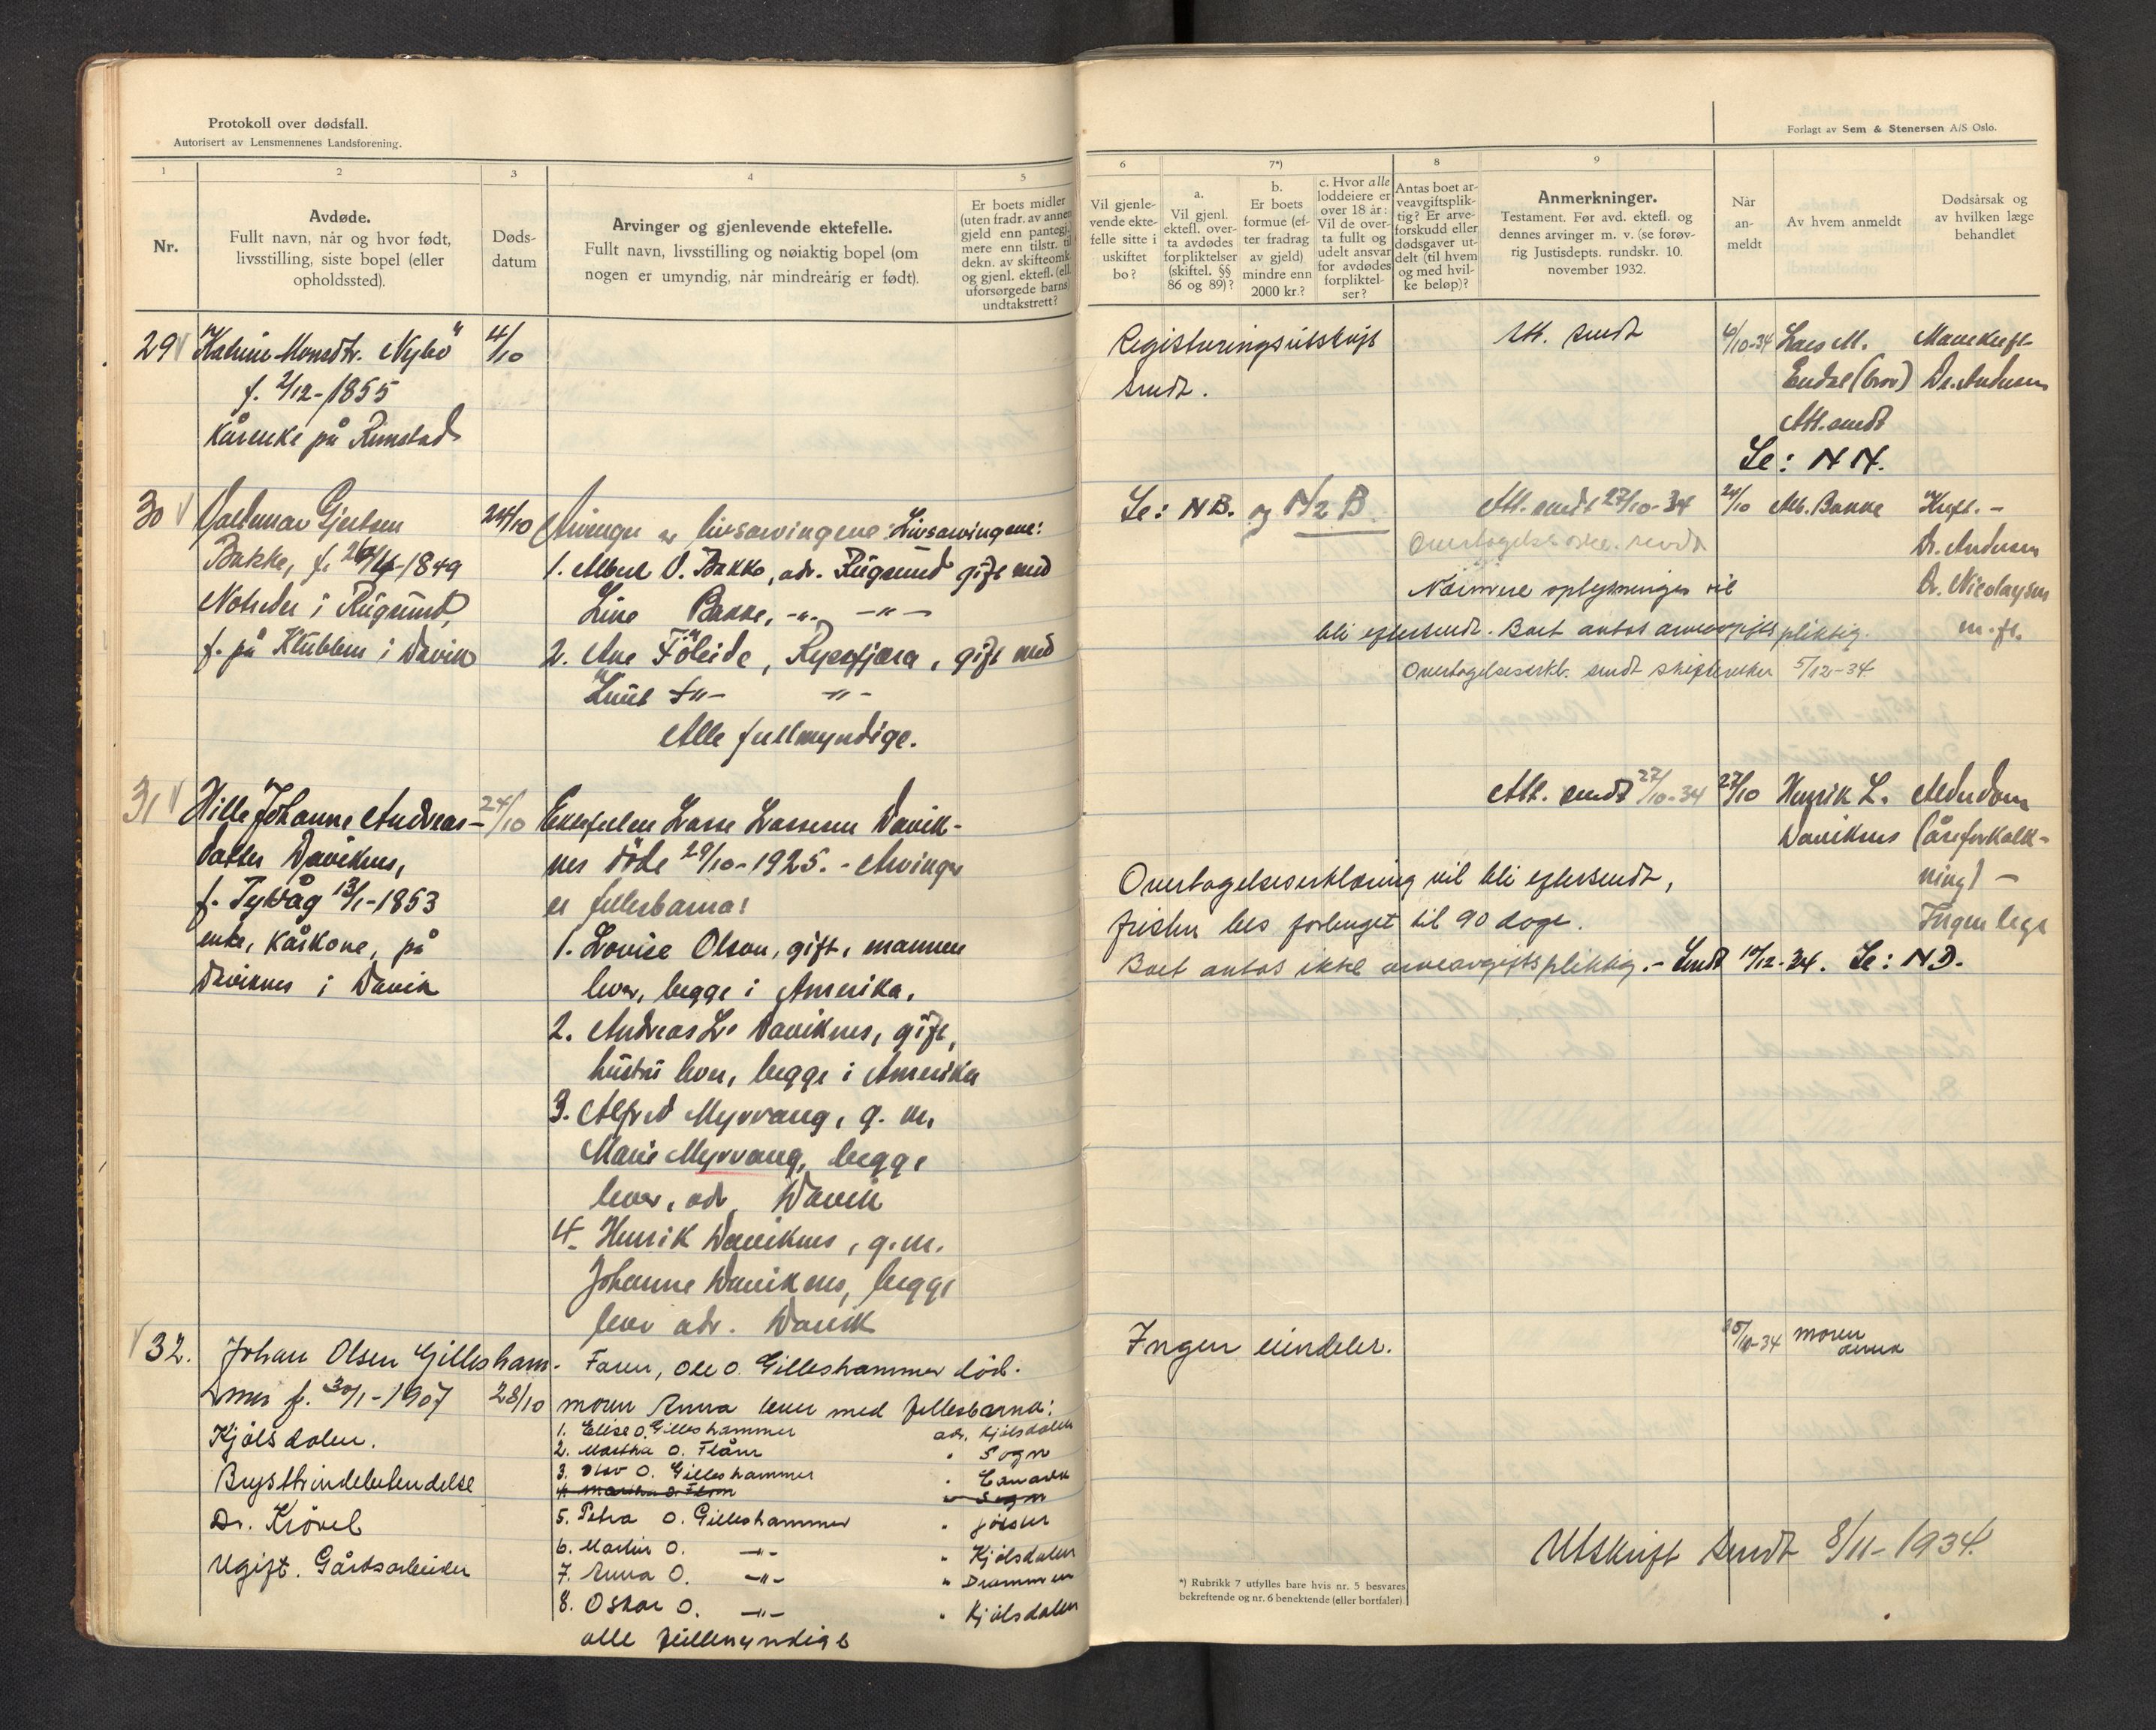 Protokoll over dødsfall.
Autorisert av Lensmennenes Landsforening.
1
2
3
4
5
Nr.
Avdøde.
Fullt navn, når og hvor født,
livsstilling, siste bopel (eller
opholdssted).
Døds-
datum
Arvinger og gjenlevende ektefelle.
Fullt navn, livsstilling og nøiaktig bopel (om
nogen er umyndig, når mindreårig er født).
Er boets midler
(uten fradr. av annen
gjeld enn pantegj.)
mere enn tilstr. til
dekn. av skifteomk.
og gjenl. ektefl. (ell.
uforsørgede barns)
undtakstrett?
29 Katrine Monsdtr. Nybö 4/10
f. 2/12-1855
Kårenke på Rimstad
30 Valdemar Gjertsen 24/10 Arvinger er livsarvingene: Livsarvingene:
Bakke, f. 26/4-1849 1. Albert V. Bakke, adr. Rugsund gift med
Notreder i Rugsund, Line Bakke, -"- -"-
f. på Klubben i Davik 2. Ane Föleide, Ryssfjæra, gift med
Knut F"- -"-
Alle fullmyndige.
31 Hille Johanne Andreas- 24/10 Ektefellen Lasse Lassesen Davik-
datter Daviknes, nes döde 29/10-1925. - Arvinger
f. Tytvåg 13/1-1853 er fellesbarna:
enke, kårkone, på 1. Lovise Olson, gift, mannen
Daviknes i Davik lever, begge i Amerika.
2. Andreas L. Daviknes, gift,
hustru lever, begge i Amerika
3. Alfred Myrvang, g. m.
Marie Myrvang, begge
lever, adr. Davik
4. Henrik Daviknes, g. m.
Johanne Daviknes, begge
lever adr. Davik
32. Johan Olsen Gillesham- Faren, Ole O. Gilleshammer död.
mer f. 30/1-1907 28/10 moren Anna lever med fellesbarna:
Kjölsdalen. 1. Elise O. Gilleshammer adr. Kjölsdalen
2. Martha O. Flåm " Sogn
Brysthindebetendelse 3. Olav O. Gilleshammer " Canada
4. Martha O. Flom " Sogn
Dr. Krövel 5. Petra O. Gilleshammer " Jölster
6. Martin O. -"- " Kjölsdalen
Ugift. Gårdsarbeider 7. Anna O. -"- " Drammen
8. Oskar O. -"- " Kjölsdalen
alle fullmyndige
Forlagt av Sem & Stenersen A/S Oslo.
6
7*)
8
9
Vil gjenle-
vende ekte-
felle sitte i
uskiftet
bo?
a.
Vil gjenl.
ektefl. over-
ta avdødes
forpliktelser
(skiftel. §§
86 og 89)?
b.
Er boets
formue (ef-
ter fradrag
av gjeld)
mindre enn
2000 kr.?
c. Hvor alle
loddeiere er
over 18 år:
Vil de over-
ta fullt og
udelt ansvar
for avdødes
forpliktel-
ser?
Antas boet ar-
veavgiftsplik-
tig? Er arve-
forskudd eller
dødsgaver ut-
delt (til hvem
og med hvil-
ke beløp)?
Anmerkninger.
Testament. Før avd. ektefl. og
dennes arvinger m. v. (se forøv-
rig Justisdepts. rundskr. 10.
november 1932.
Når
an-
meldt
Av hvem anmeldt
Dødsårsak og
av hvilken læge
behandlet
Registreringsutskrift Att. sendt 6/10-34 Lars M. Mavekreft
sendt. Endal (bror) Dr. Andersen
Att. sendt
Se: N N.
Se: NB. og N/2 B. Att. sendt 27/10-34 24/10 Alb. Bakke Kreft. -
Overtagelse sendt Dr. Andersen
Nærmere oplysninger vil Dr. Nicolaysen
bli eftersendt. Boet antas arveavgiftspliktig. m. fl.
Overtagelseserkl. sendt skifteretten 5/12-34
Att. sendt 27/10-34 27/10 Henrik L. Alderdom
Daviknes (åreforkalk-
Overtagelseserklæring vil bli eftersendt, ning) -
fristen bes forlenget til 90 dage. Ingen lege
Boet antas ikke arveavgiftspliktig. - Sendt 17/12-34. Se: N D.
Ingen eiendeler. 5/11-34 moren
Anna
Utskrift sendt 8/11-1934.
*) Rubrikk 7 utfylles bare hvis nr. 5 besvares
bekreftende og nr. 6 benektende (eller bortfaler)